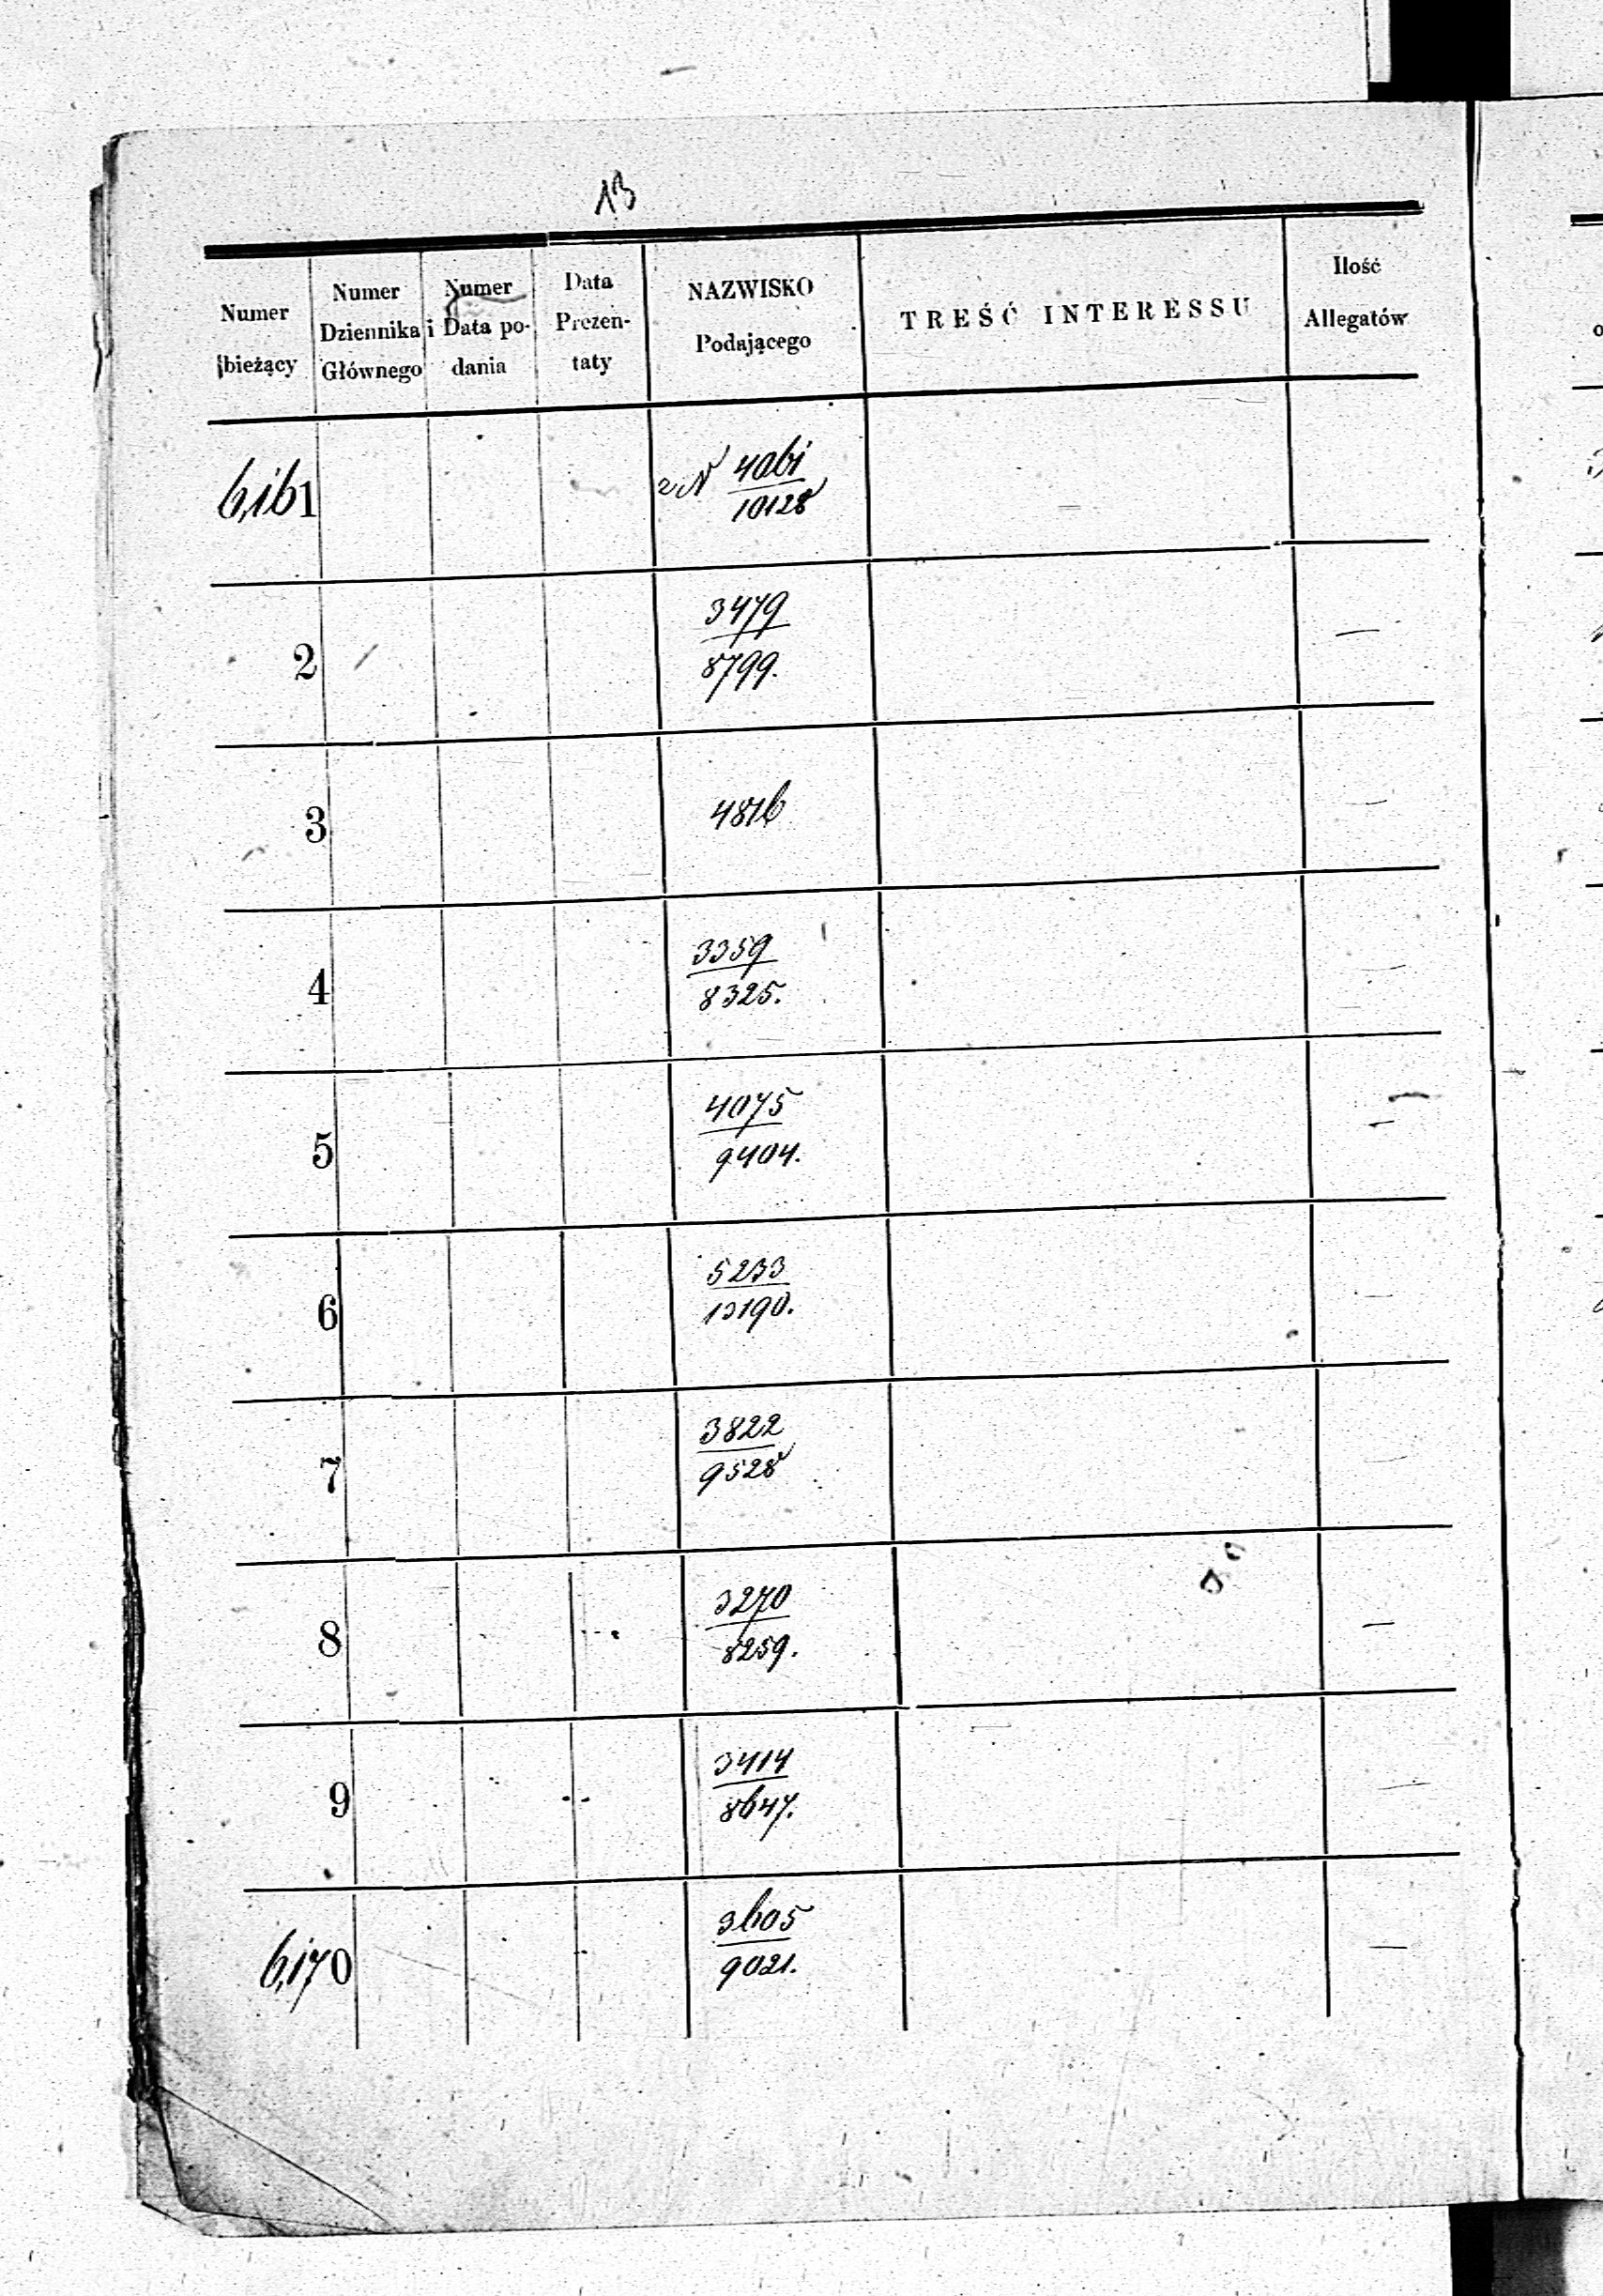 13
Numer bieżący
Numer Dziennika Głównego
Numer i Data podania
Data Prezentaty
NAZWISKO Podającego
TREŚĆ INTERESSU
Ilość Allegatów
6,161
z N 4061
10128
2
3479
8799.
3
4816
4
3359
8325.
5
4075
9404.
6
5233
13190.
7
3822
9528
8
3270
8259.
9
3414
8647.
6,170
3605
9021.